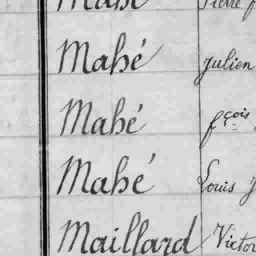 Mahé Pierre
Mahé Julien
Mahé fçois
Mahé Louis
Maillard Victor